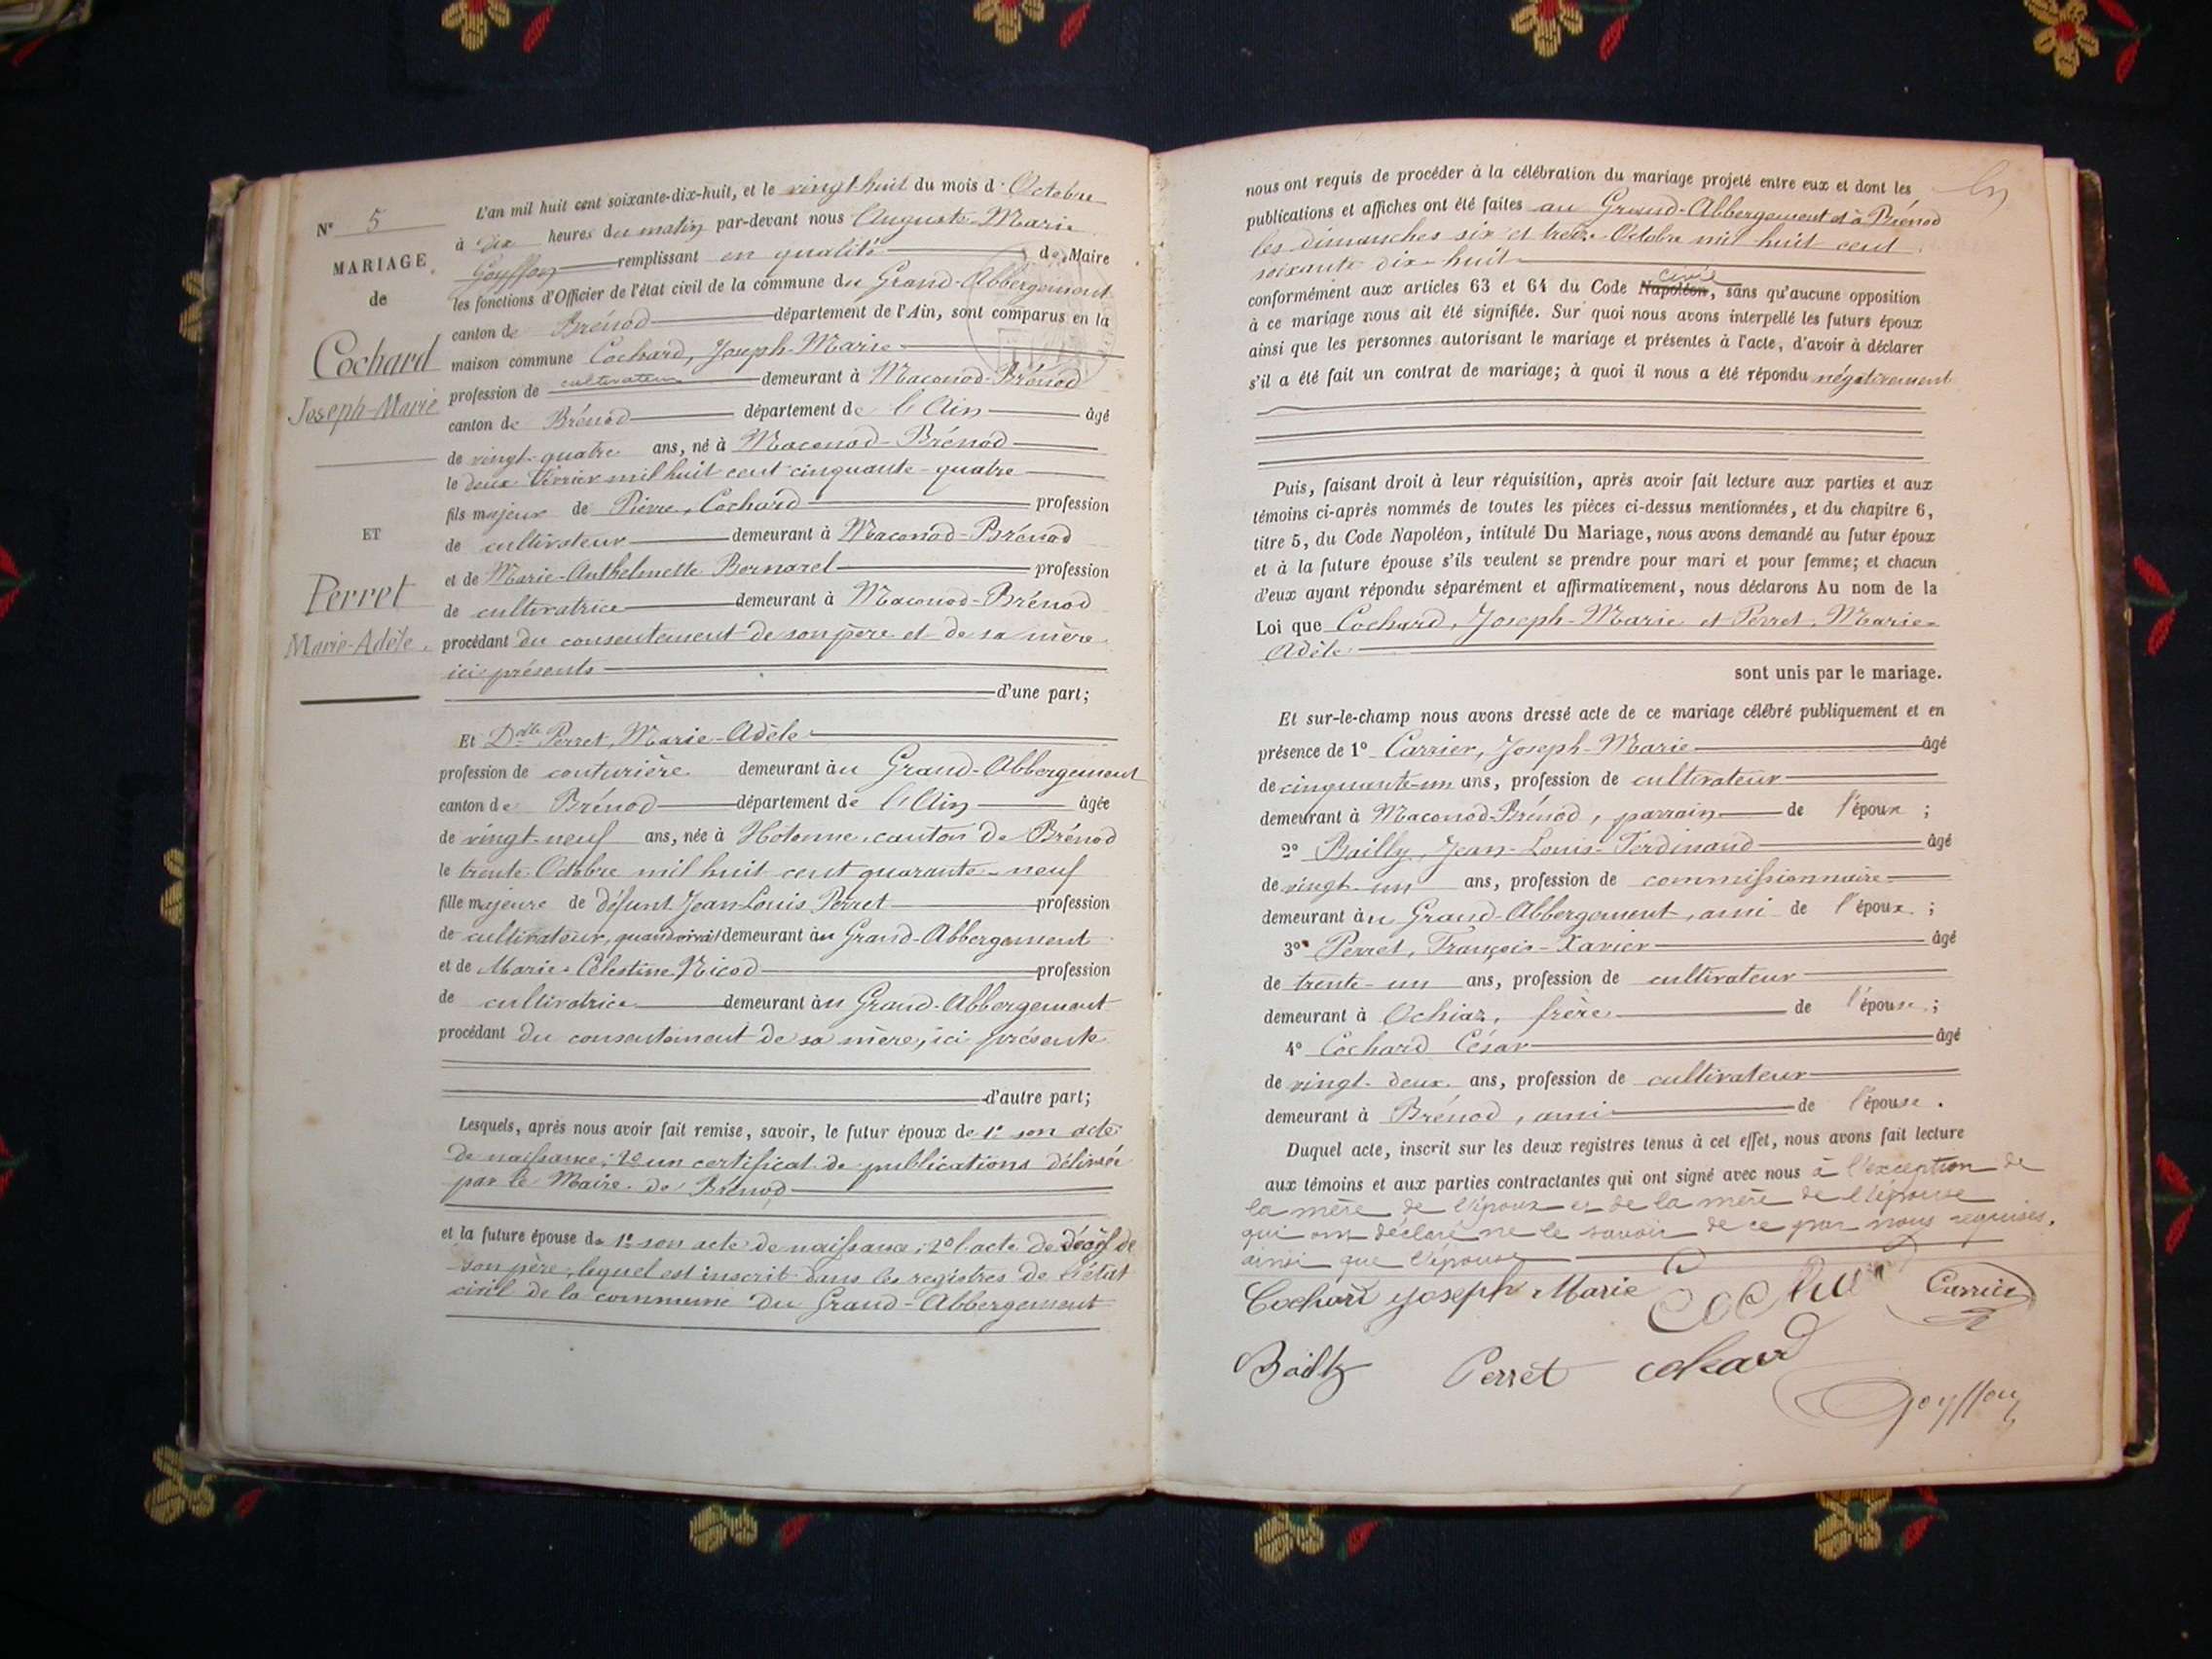 N° 5
MARIAGE
de
Cochard
Joseph-Marie
ET
Perret
Marie-Adèle.
L'an mil huit cent soixante-dix-huit, et le vingt-huit du mois d'Octobre
à dix heures du matin par-devant nous Auguste-Marie
Goyffon remplissant en qualité de Maire
les fonctions d'Officier de l'état civil de la commune du Grand-Abbergement
canton de Brénod département de l'Ain, sont comparus en la
maison commune Cochard, Joseph-Marie
profession de cultivateur demeurant à Maconod-Brénod
canton de Brénod département de l'Ain âgé
de vingt-quatre ans, né à Maconod-Brénod
le deux Février mil huit cent cinquante-quatre
fils majeur de Pierre, Cochard profession
de cultivateur demeurant à Maconod-Brénod
et de Marie-Anthelmette Bernard profession
de cultivatrice demeurant à Maconod-Brénod
procédant du consentement de son père et de sa mère,
ici présents
d'une part;
Et Dlle Perret, Marie-Adèle
profession de couturière demeurant au Grand-Abbergement
canton de Brénod département de l'Ain âgée
de vingt-neuf ans, née à Hotonne, canton de Brénod
le trente Octobre mil huit cent quarante-neuf
fille majeure de défunt Jean-Louis Perret profession
de cultivateur, quand vivait demeurant au Grand-Abbergement
et de Marie-Célestine Nicod profession
de cultivatrice demeurant au Grand-Abbergement
procédant du consentement de sa mère, ici présente
d'autre part;
Lesquels, après nous avoir fait remise, savoir, le futur époux de 1° son acte
de naissance; 2° un certificat de publications délivrée
par le Maire de Brénod
et la future épouse de 1° son acte de naissance; 2° l'acte de décès de
son père, lequel est inscrit dans les registres de l'état
civil de la commune du Grand-Abbergement
nous ont requis de procéder à la célébration du mariage projeté entre eux et dont les
publications et affiches ont été faites au Grand-Abbergement et à Brénod
les dimanches six et treize Octobre mil huit cent
soixante-dix-huit
civil
conformément aux articles 63 et 64 du Code Napoléon, sans qu'aucune opposition
à ce mariage nous ait été signifiée. Sur quoi nous avons interpellé les futurs époux
ainsi que les personnes autorisant le mariage et présentes à l'acte, d'avoir à déclarer
s'il a été fait un contrat de mariage; à quoi il nous a été répondu négativement
Puis, faisant droit à leur réquisition, après avoir fait lecture aux parties et aux
témoins ci-après nommés de toutes les pièces ci-dessus mentionnées, et du chapitre 6,
titre 5, du Code Napoléon, intitulé Du Mariage, nous avons demandé au futur époux
et à la future épouse s'ils veulent se prendre pour mari et pour femme; et chacun
d'eux ayant répondu séparément et affirmativement, nous déclarons Au nom de la
Loi que Cochard, Joseph-Marie et Perret, Marie-
Adèle
sont unis par le mariage.
Et sur-le-champ nous avons dressé acte de ce mariage célébré publiquement et en
présence de 1° Carrier, Joseph-Marie âgé
de cinquante-un ans, profession de cultivateur
demeurant à Maconod-Brénod, parrain de l'époux ;
2° Bailly, Jean-Louis-Ferdinand âgé
de vingt-un ans, profession de commissionnaire
demeurant au Grand-Abbergement, ami de l'époux ;
3° Perret, François-Xavier âgé
de trente-un ans, profession de cultivateur
demeurant à Ochiaz, frère de l'épouse ;
4° Cochard César âgé
de vingt-deux ans, profession de cultivateur
demeurant à Brénod, ami de l'épouse.
Duquel acte, inscrit sur les deux registres tenus à cet effet, nous avons fait lecture
aux témoins et aux parties contractantes qui ont signé avec nous à l'exception de
la mère de l'époux et de la mère de l'épouse
qui ont déclaré ne le savoir de ce par nous requises.
ainsi que l'épouse
Cochard Joseph Marie Carrier
Bailly Perret cohard
Goyffon